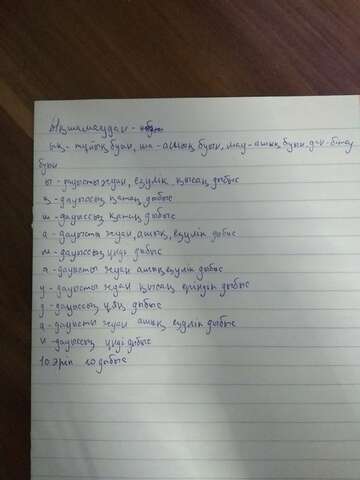 Ықшамаудан -
Ық - тұйық буын, ша - ашық буын, мау - ашық буын, дан - бітеу
буын
ы - дауысты жуан, езулік қысаң дыбыс
қ - дауыссыз қатаң дыбыс
ш - дауыссыз қатаң дыбыс
а - дауысты жуан, ашық, езулік дыбыс
м - дауыссыз үнді дыбыс
а - дауысты жуан ашық езулік дыбыс
у - дауысты жуан қысаң еріндік дыбыс
д - дауыссыз ұяң дыбыс
а - дауысты жуан ашық езулік дыбыс
н - дауыссыз үнді дыбыс
10 әріп 10 дыбыс